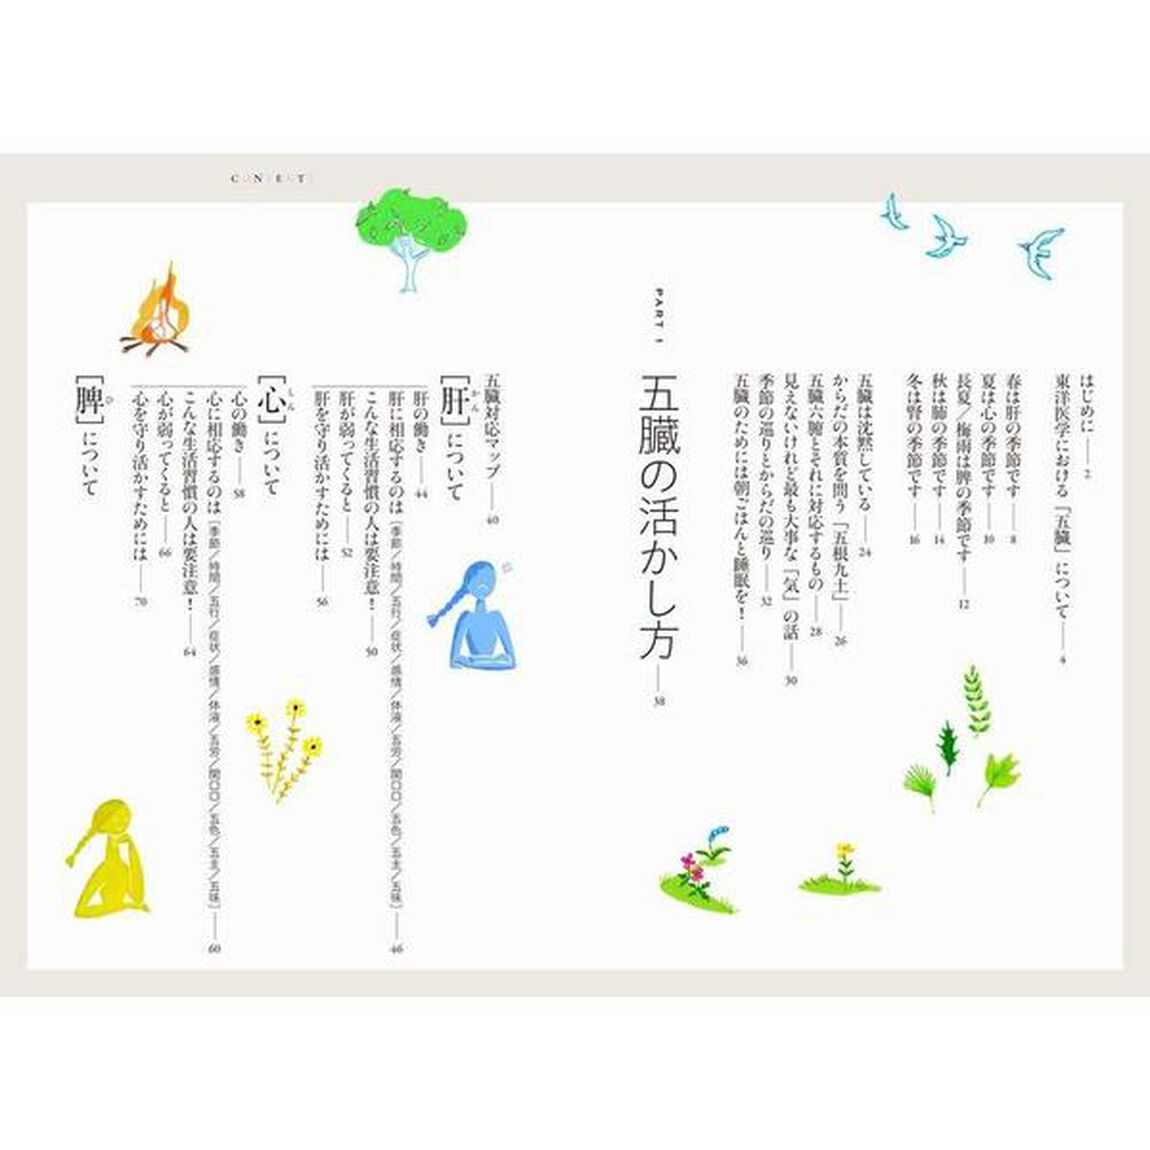 CONTENTS
はじめに——2
東洋医学における「五臓」について——4
春は肝の季節です——8
夏は心の季節です——10
長夏／梅雨は脾の季節です——12
秋は肺の季節です——14
冬は腎の季節です——16
五臓は沈黙している——24
からだの本質を問う「五根九土」——26
五臓六腑とそれに対応するもの——28
見えないけれど最も大事な「気」の話——30
季節の巡りとからだの巡り——32
五臓のためには朝ごはんと睡眠を！——36
PART 1
五臓の活かし方——38
五臓対応マップ——40
［肝］かん について
肝の働き——44
肝に相応するのは［季節／時間／五行／症状／感情／体液／五労／開口口／五色／五主／五味］——46
こんな生活習慣の人は要注意！——50
肝が弱ってくると——52
肝を守り活かすためには——56
［心］しん について
心の働き——58
心に相応するのは［季節／時間／五行／症状／感情／体液／五労／開口口／五色／五主／五味］——60
こんな生活習慣の人は要注意！——64
心が弱ってくると——66
心を守り活かすためには——70
［脾］ひ について